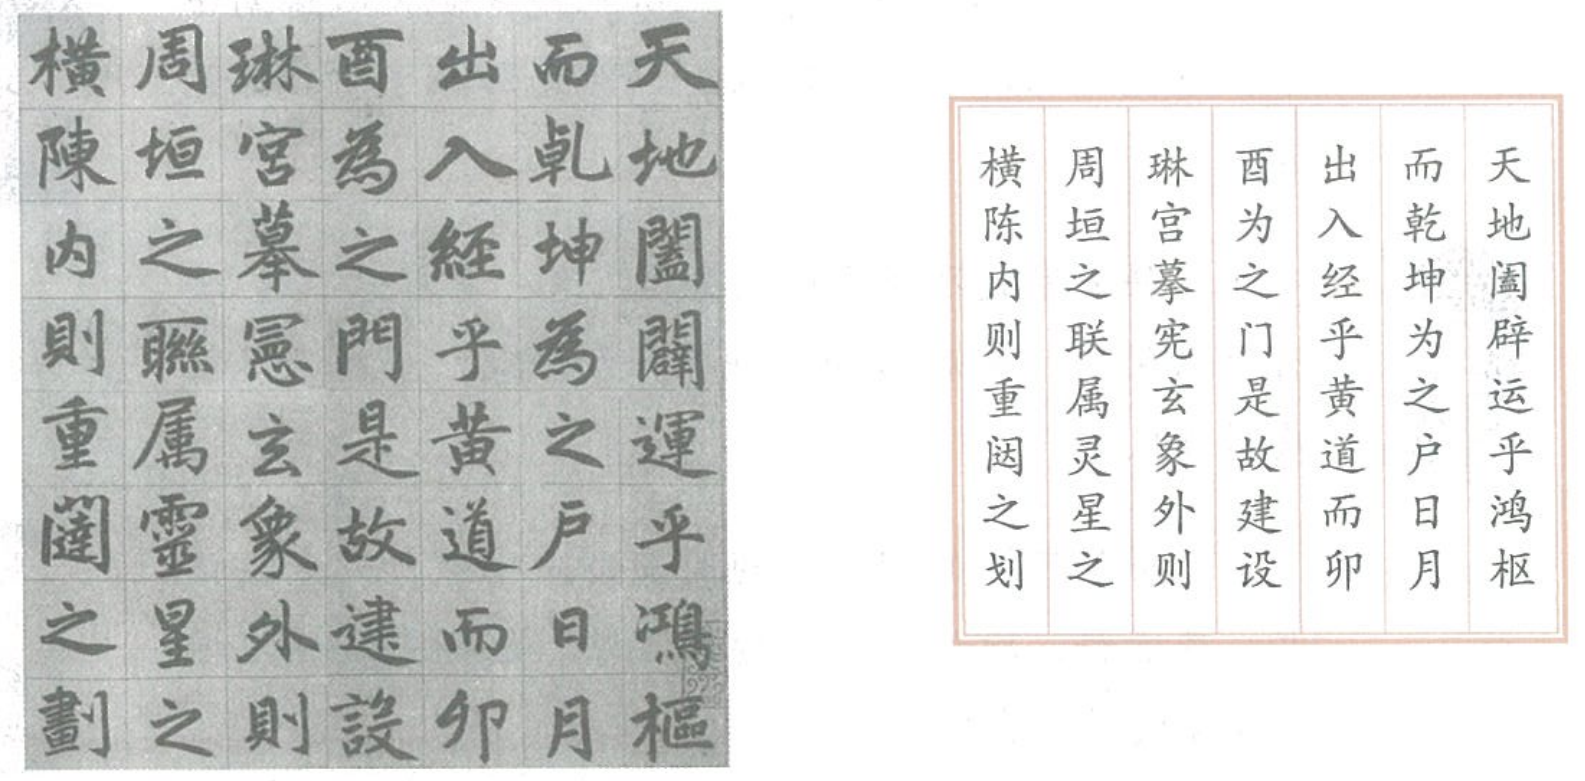 天地闔闢運乎鴻樞
而乹坤為之户日月
出入經乎黄道而卯
酉為之門是故建設
琳宫摹憲玄象外則
周垣之聮属靈星之
横陳内則重闥之劃
天地阖辟运乎鸿枢
而乾坤为之户日月
出入经乎黄道而卯
酉为之门是故建设
琳宫摹宪玄象外则
周垣之联属灵星之
横陈内则重闼之划